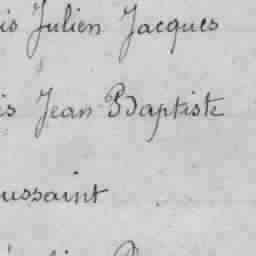 is Julien Jacques
is Jean Baptiste
oussaint